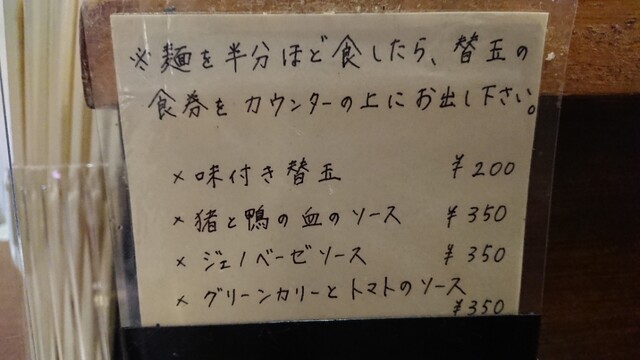 ※麺を半分ほど食したら、替玉の
食券をカウンターの上にお出し下さい。
×味付き替玉 ¥200
×猪と鴨の血のソース ¥350
×ジェノベーゼソース ¥350
×グリーンカリーとトマトのソース
¥350